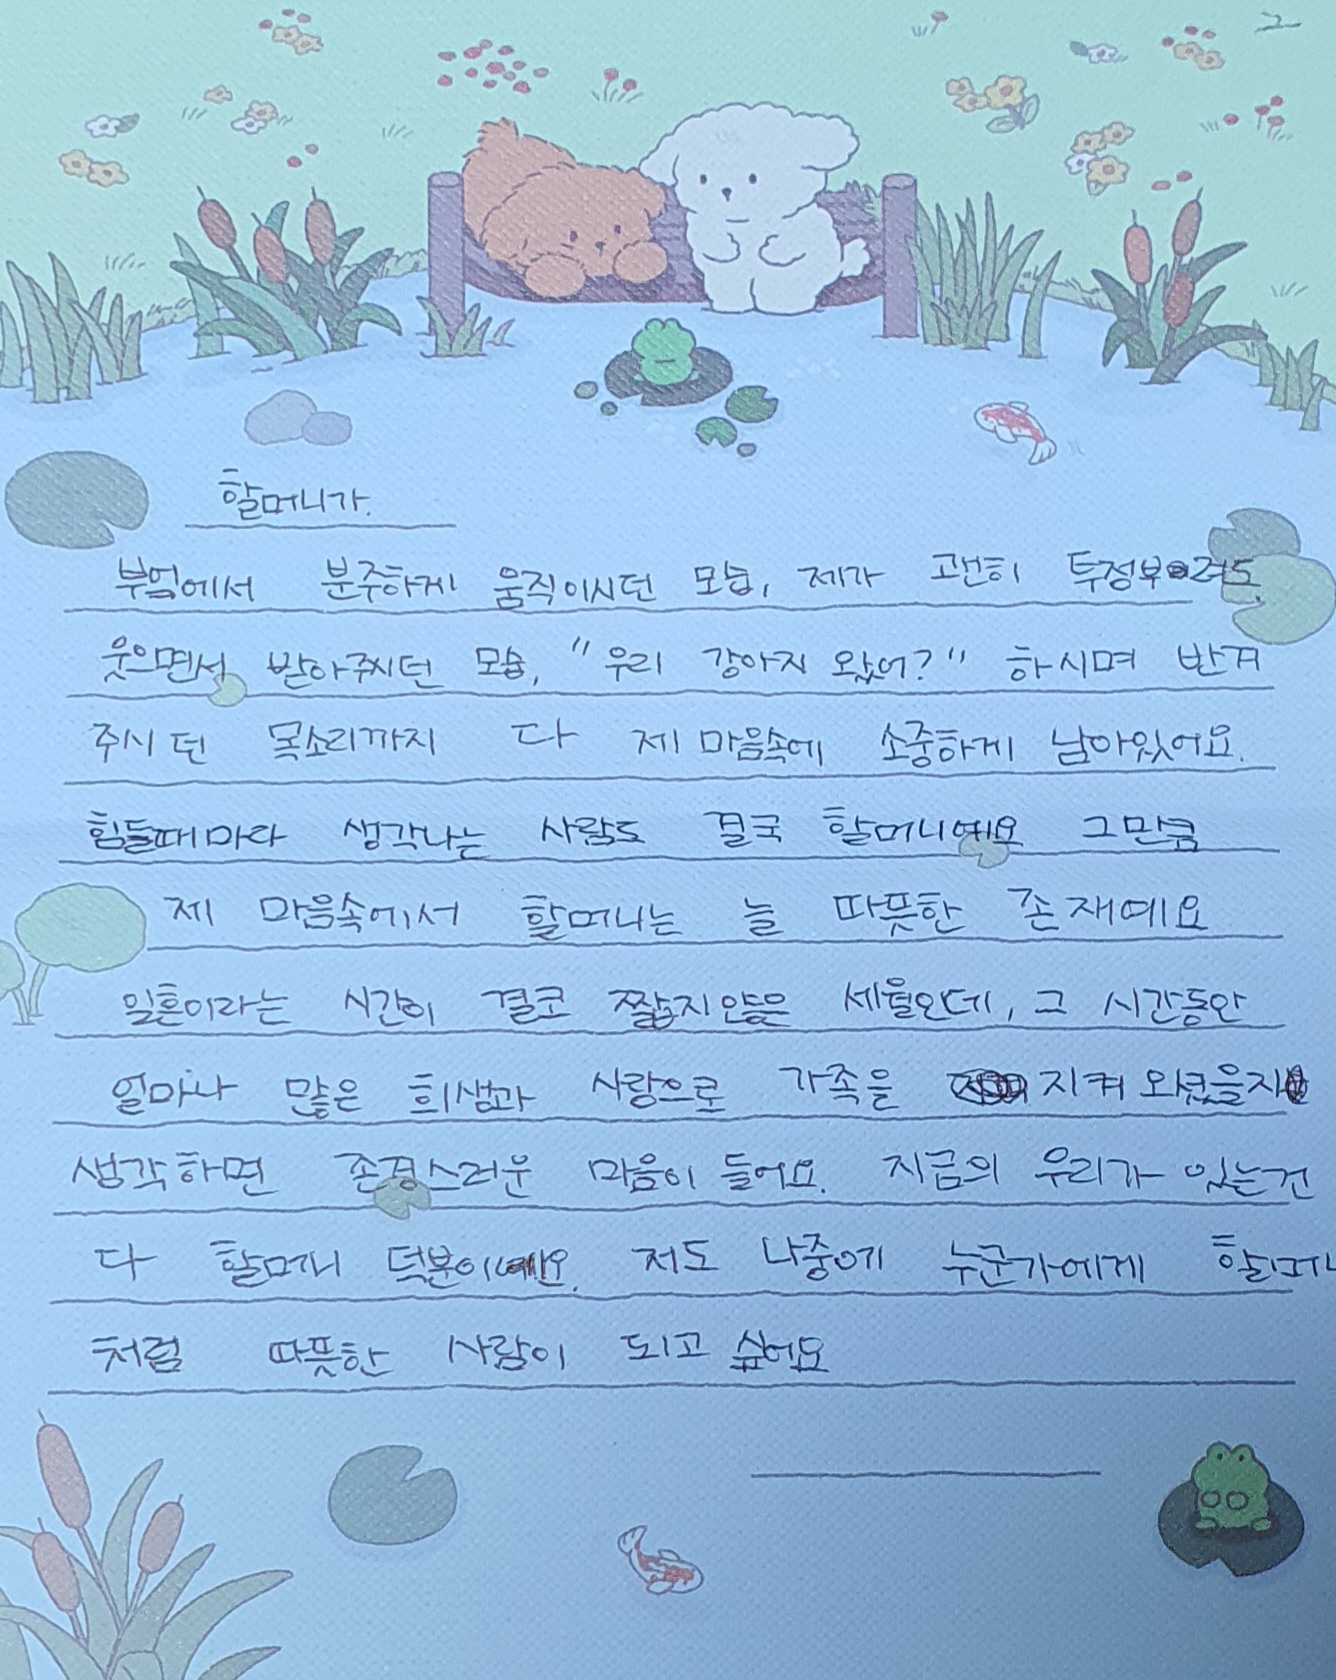 할머니가.
부엌에서 분주하게 움직이시던 모습, 제가 괜히 투정부려도
웃으면서 받아주시던 모습, "우리 강아지 왔어?" 하시며 반겨
주시던 목소리까지 다 제 마음속에 소중하게 남아있어요.
힘들때마다 생각나는 사람도 결국 할머니예요 그만큼
제 마음속에서 할머니는 늘 따뜻한 존재예요
일흔이라는 시간이 결코 짧지않은 세월인데, 그 시간동안
얼마나 많은 희생과 사랑으로 가족을 지켜오셨을지
생각하면 존경스러운 마음이 들어요. 지금의 우리가 있는건
다 할머니 덕분이예요. 저도 나중에 누군가에게 할머니
처럼 따뜻한 사람이 되고 싶어요